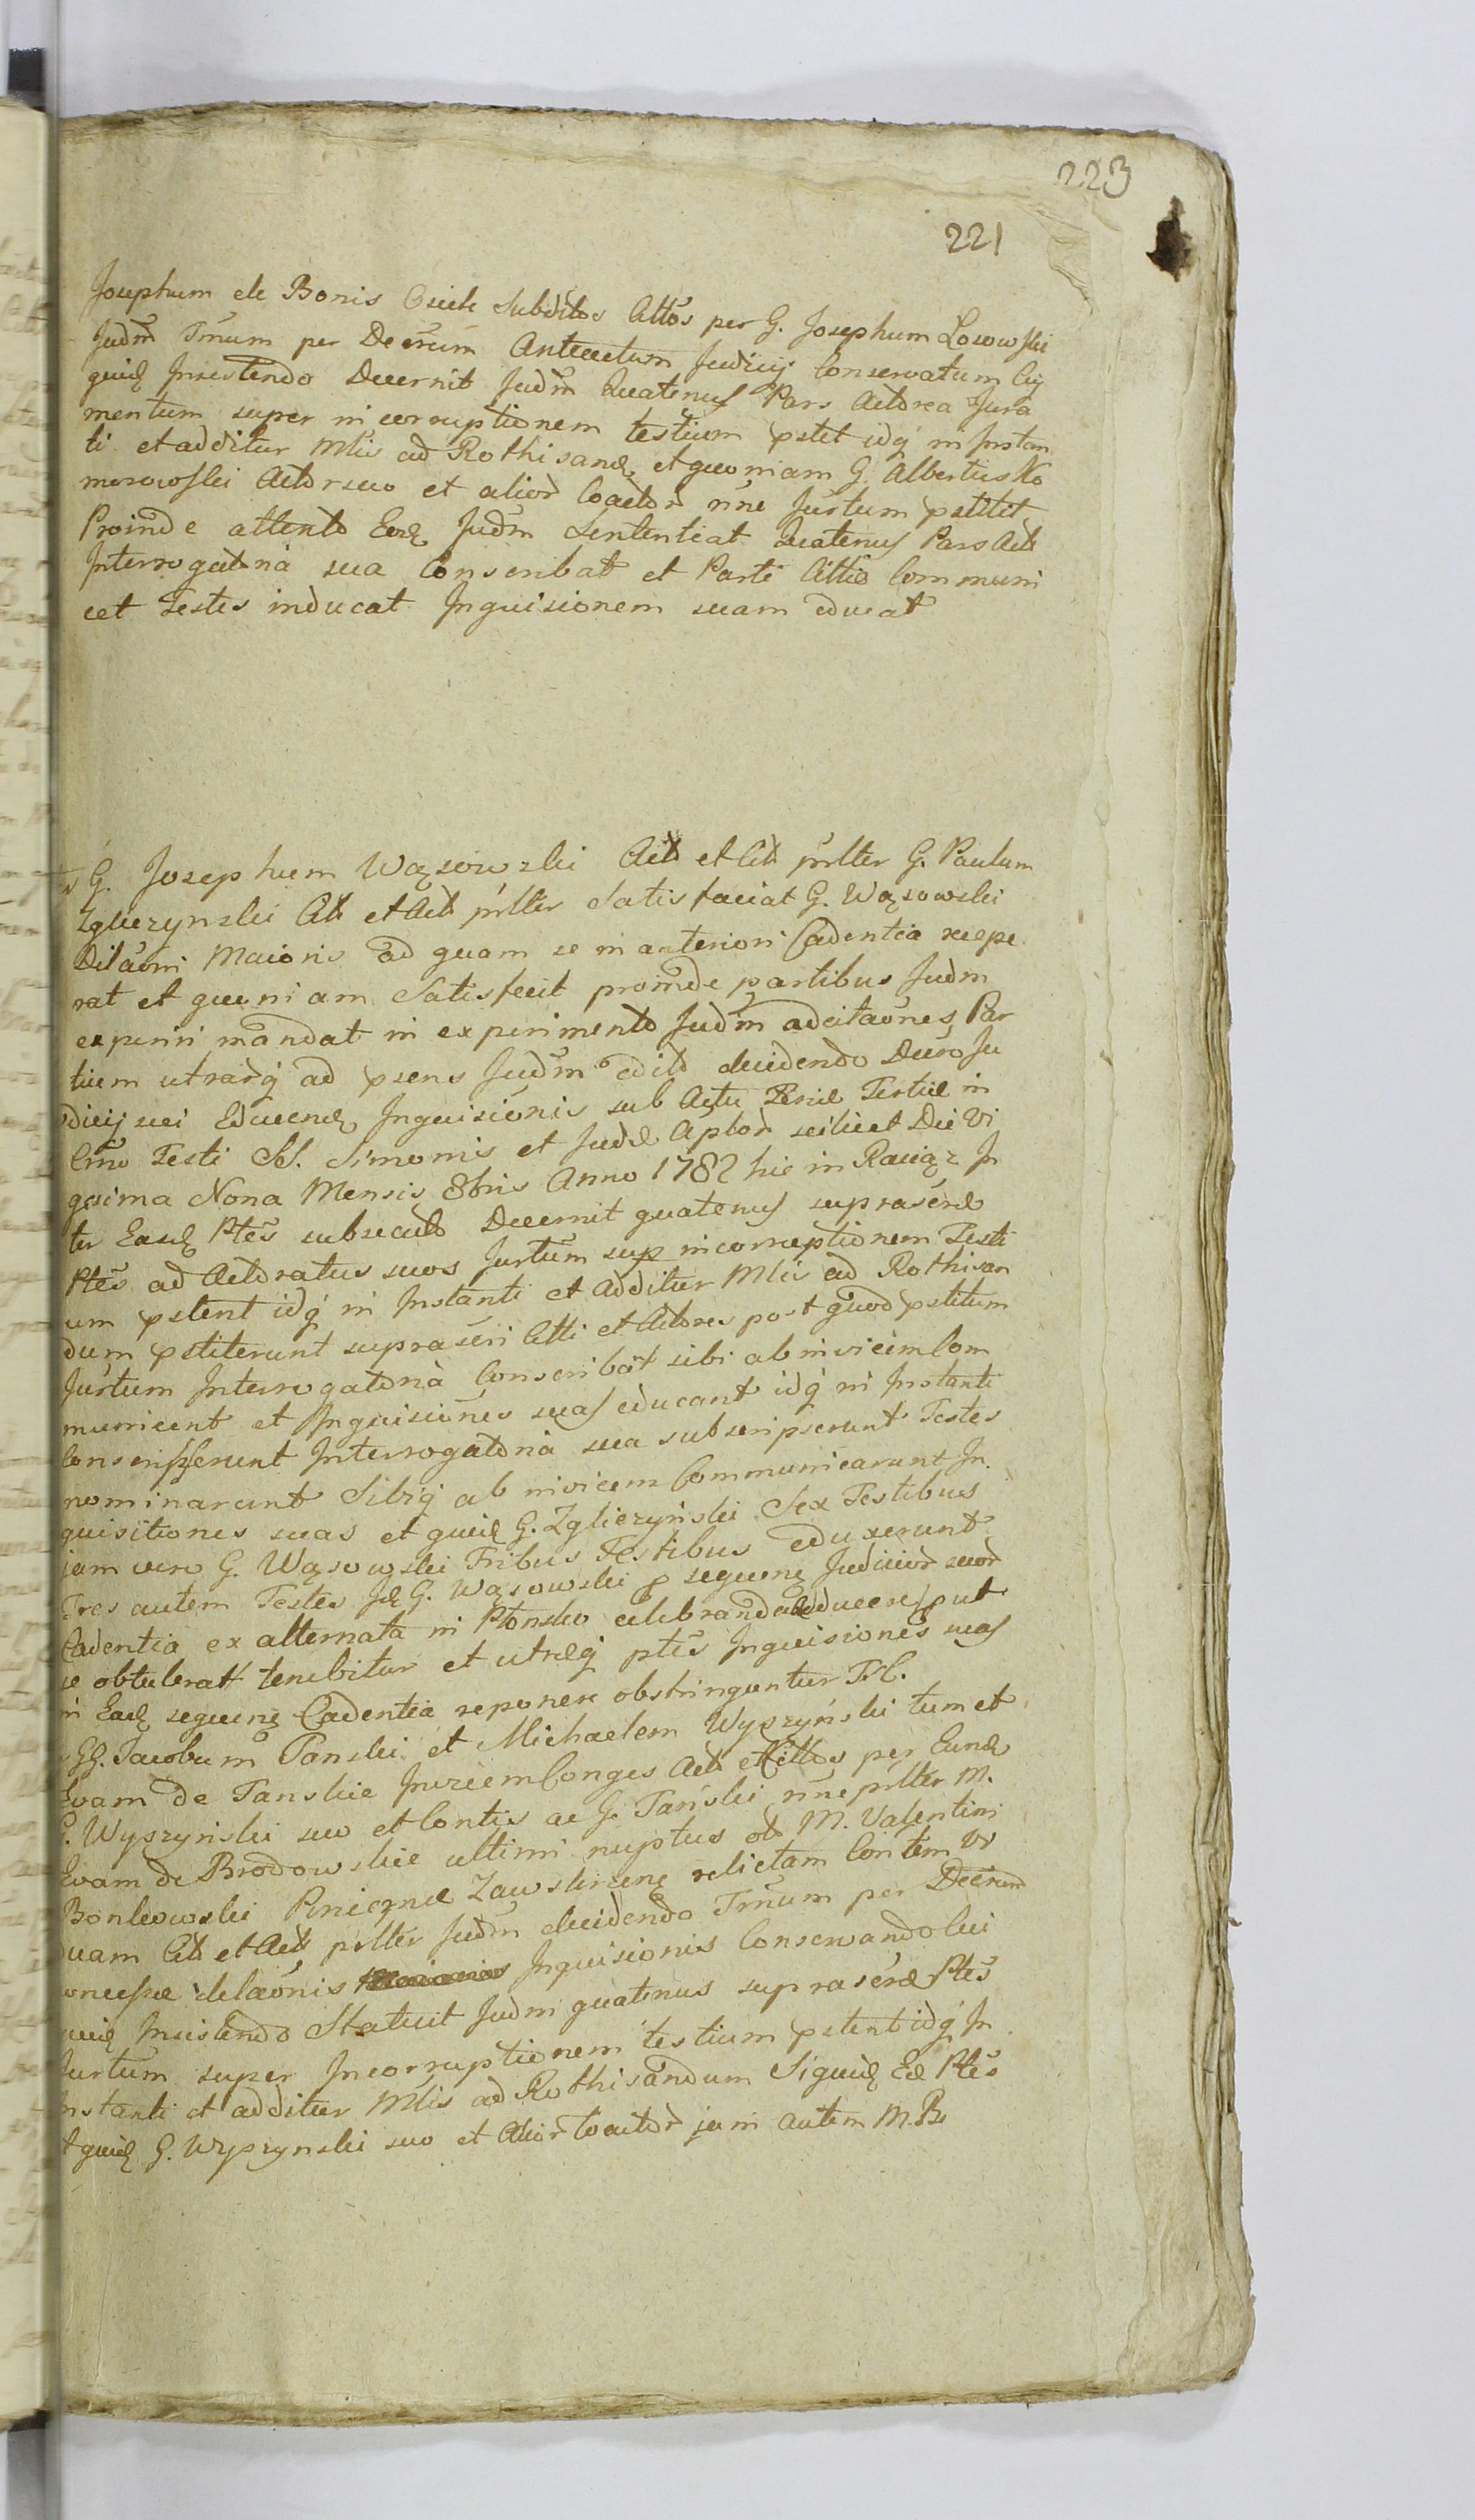 223
221
Josephum de Bonis Osiek Subditos Cittõs per G. Josephum Losowski
Judm̃ Tm̃um per Decrũm Antecctum Judicij Conservatum Cuj
quid Insistendo Decernit Judm̃ Quatenus Pars Actorea Jura
mentum super in corruptionem testium pstet idq̃ in Instan
ti et additur Mlis ad Rothisand et quoniam G. Albertus Ko
morowski Actor suo et alior Coactor nñe Jurtum pstitit
Proinde attento Eod Judm̃ Sententiat Quatenus Pars Act
Interrogatria sua Conscribat et Parti Cittæ Communi
cet Testes inducat Inquisionem suam educat
G. Josephum Wąsowski Act et Cit pñlter G. Paulum
Zgliczynski Cit et Act pñlter Satisfaciat G. Wąsowski
Dilaõni Maioris ad quam se in anteriori Cadentia recepe
rat et quoniam Satisfecit proinde partibus Judm
experiri mandat in experimento Judm̃ adcitaõnes Par
tium utrarq̃ ad psens Judm̃ edito decidendo Decro Ju
dicij sui Educend Inquisionis sub Actu Feriæ Tertiæ in
Crno Festi SS. Simonis et Judæ Aplor scilicet Die Vi
gesima Nona Mensis 8bris Anno 1782 hic in Raciąz In
ter Easd Ptes subsecuto Decernit quatenus suprascræ
Ptes ad Actoratus suos Jurtum sup incorruptionem Testi
um pstent idq̃ in Instanti et Additur Mlis ad Rothisan
dum pstiterunt suprascri Citti et Actores post quod pstitum
Jurtum Interrogatoria Conscribãt sibi ab invicim Com
municent et Inquisiones suas educant idq̃ in Instanti
Conscripserunt Interrogatoria sua subscripserunt Testes
nominarunt Sibiq̃ ab invicem Communicarunt In
quisitiones suas et quid G. Zgliczyński Sex Testibus
jam vero G. Wąsowski Tribus Testibus eduxerunt
Tres autem Testes G. Wąsowski p sequenq Judicior suor
Cadentia ex alternata in Płonsko celebranda educere put
se obtulerat tenebitur et utræq̃ ptes Inquisiones suas
in Ead sequenq Cadentia reponere obstringuntur
GG. Jacobum Tanski et Michaelem Wyszyński tum et
Evam de Tanskie Invicem Conges Act et Cittos per Eund
G. Wyszyński suo et Contis ac G. Tański nñe pñlter M.
Evam de Brodowskie ultimi nuptus ob M. Valentini
Bonkowski Zawskrzenq relictam Contem Vi
duam Cit et Act pñlter Judm decidendo Tm̃um per Decrum
dilaõnis Inquisionis Conservando Cui
quid Insistendo Statuit Judm quatenus suprascræ Ptes
Jurtum super Incorruptionem testium pstent idq̃ In
nstanti et additur Mlis ad Rothisandum Siquid Eæ Ptes
quid G. Wyszynski suo et Alior Coactor jam autem M. Bo